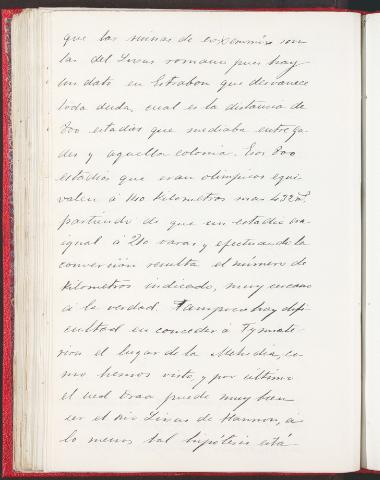 que las ruinas de exxemmis son
las del Lixus romano pues hay
un dato en Estrabon que desvanece
toda duda, cual es la distancia de
800 estadios que mediaba entre ga-
des y aquella colonia. Esos 800
estadios que eran olímpicos equi
valen á 140 kilometros mas 432m.
partiendo de que un estadio era
igual á 210 varas y efectuando la
conversión resulta el número de
kilometros indicado, muy cercano
á la verdad. Tampoco hay difi-
cultad en conceder á Tymiate-
rion el lugar de la Mehdia, co
mo hemos visto, y por último
el ued Draa puede muy bien
ser el rio Lixus de Hannon, á
lo menos tal hipótesis está